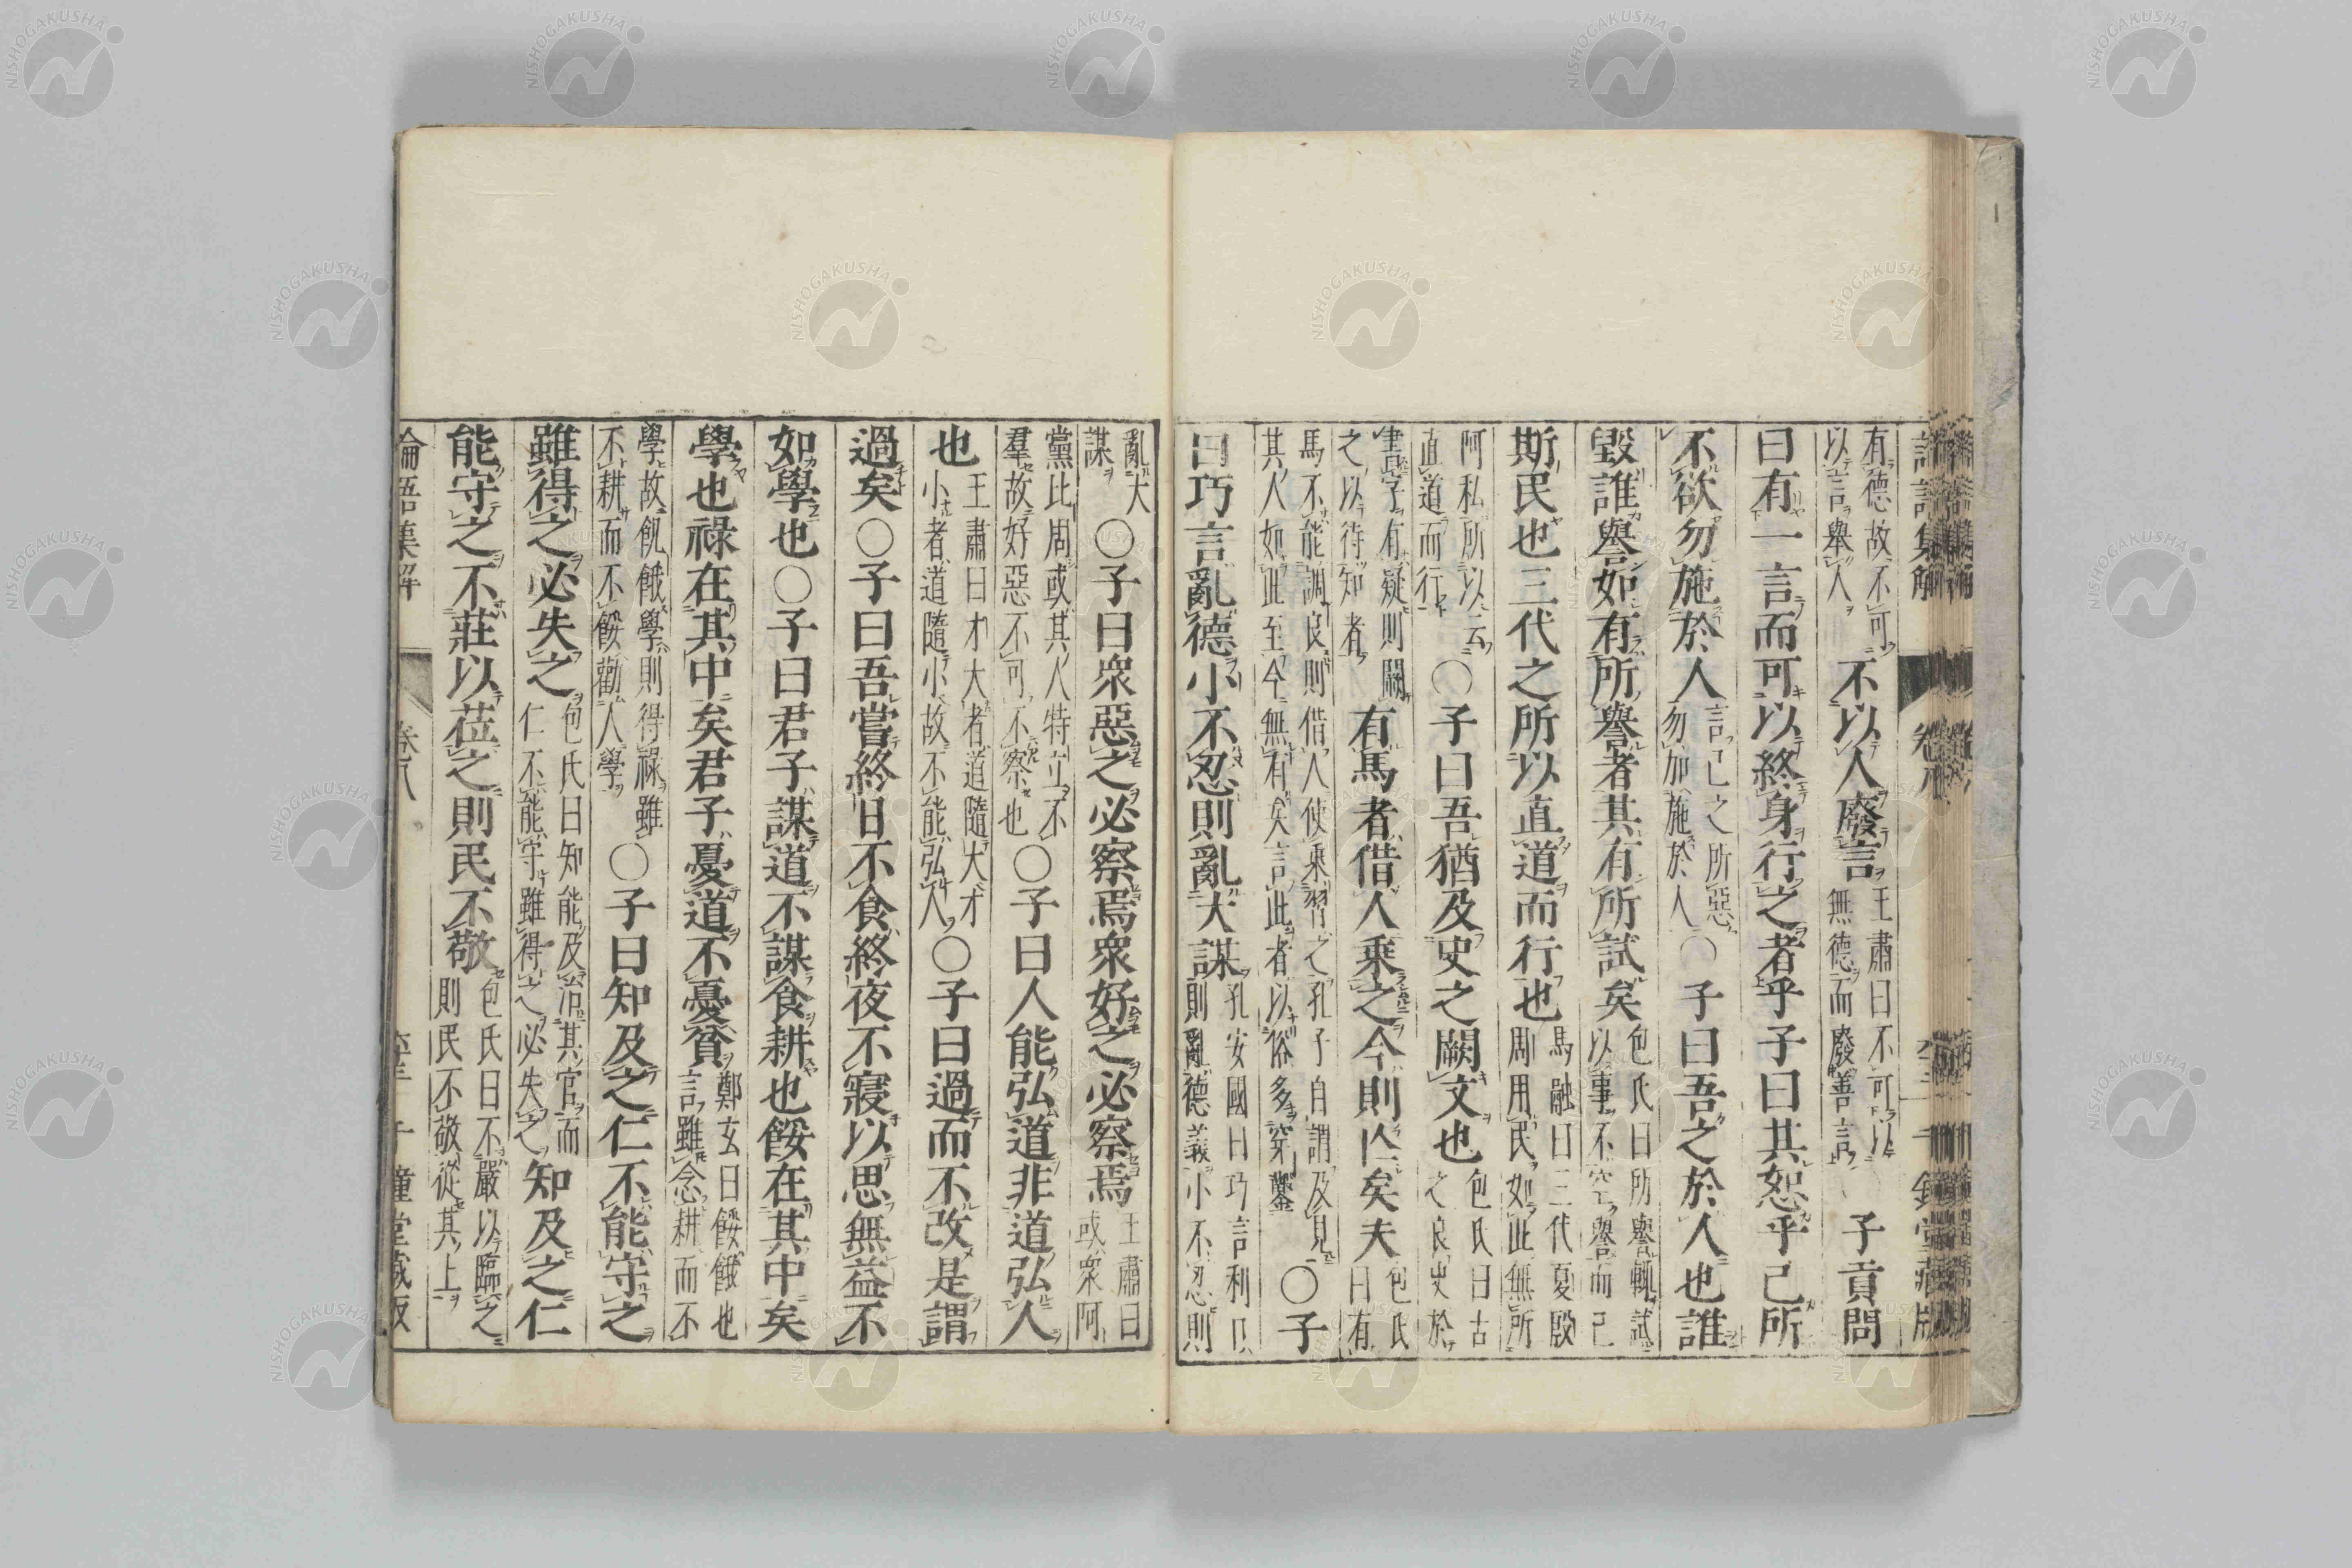 論語集解 卷八
有德故不可
以言舉人
不以人廢言
王肅曰不可以
無德而廢善言
子貢問
曰有一言而可以終身行之者乎子曰其恕乎己所
不欲勿施於人
言己之所惡
勿加施於人
○子曰吾之於人也誰
毀誰譽如有所譽者其有所試矣
包氏曰所譽輒試
以事不空譽而已
斯民也三代之所以直道而行也
馬融曰三代夏殷
周用民如此無所
阿私所以云
直道而行
○子曰吾猶及史之闕文也
包氏曰古
之良史於
書字有疑則闕
之以待知者
有馬者借人乘之今則亡矣夫
包氏
曰有
馬不能調良則借人使乘習之孔子自謂及見
其人如此至今無有矣言此者以俗多穿鑿
○子
曰巧言亂德小不忍則亂大謀
孔安國曰巧言利口
則亂德義小不忍則
亂大
謀
○子曰衆惡之必察焉衆好之必察焉
王肅曰
或衆阿
黨比周或其人特立不
羣故好惡不可不察也
○子曰人能弘道非道弘人
也
王肅曰才大者道隨大才
小者道隨小故不能弘人
○子曰過而不改是謂
過矣○子曰吾嘗終日不食終夜不寢以思無益不
如學也○子曰君子謀道不謀食耕也餒在其中矣
學也祿在其中矣君子憂道不憂貧
鄭玄曰餒餓也
言雖念耕而不
學故飢餓學則得祿雖
不耕而不餒勸人學
○子曰知及之仁不能守之
雖得之必失之
包氏曰知能及治其官而
仁不能守雖得之必失之
知及之仁
能守之不莊以莅之則民不敬
包氏曰不嚴以臨之
則民不敬從其上
論語集解 卷八 千鍾堂藏版